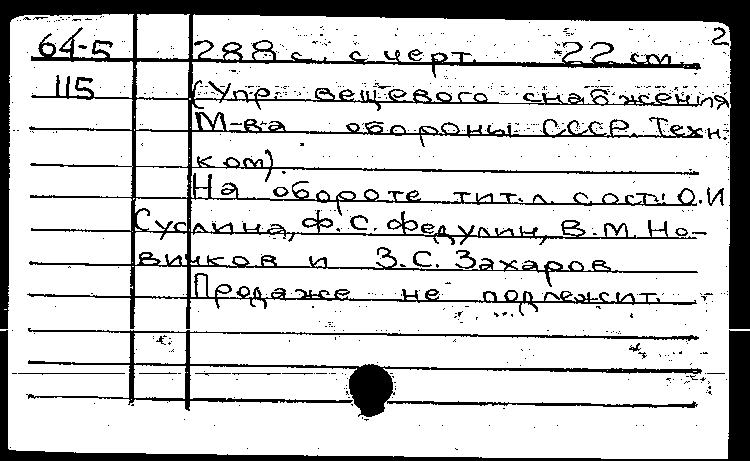 2
64-5 288 с. с черт. 22 см.
115 (Упр. вещевого снабжения
М-ва обороны СССР. Техн.
ком).
На обороте тит. л. сост.: О.И
Суслина, Ф.С. Федулин, В.М. Но-
вичков и З.С. Захаров
Продаже не подлежит.